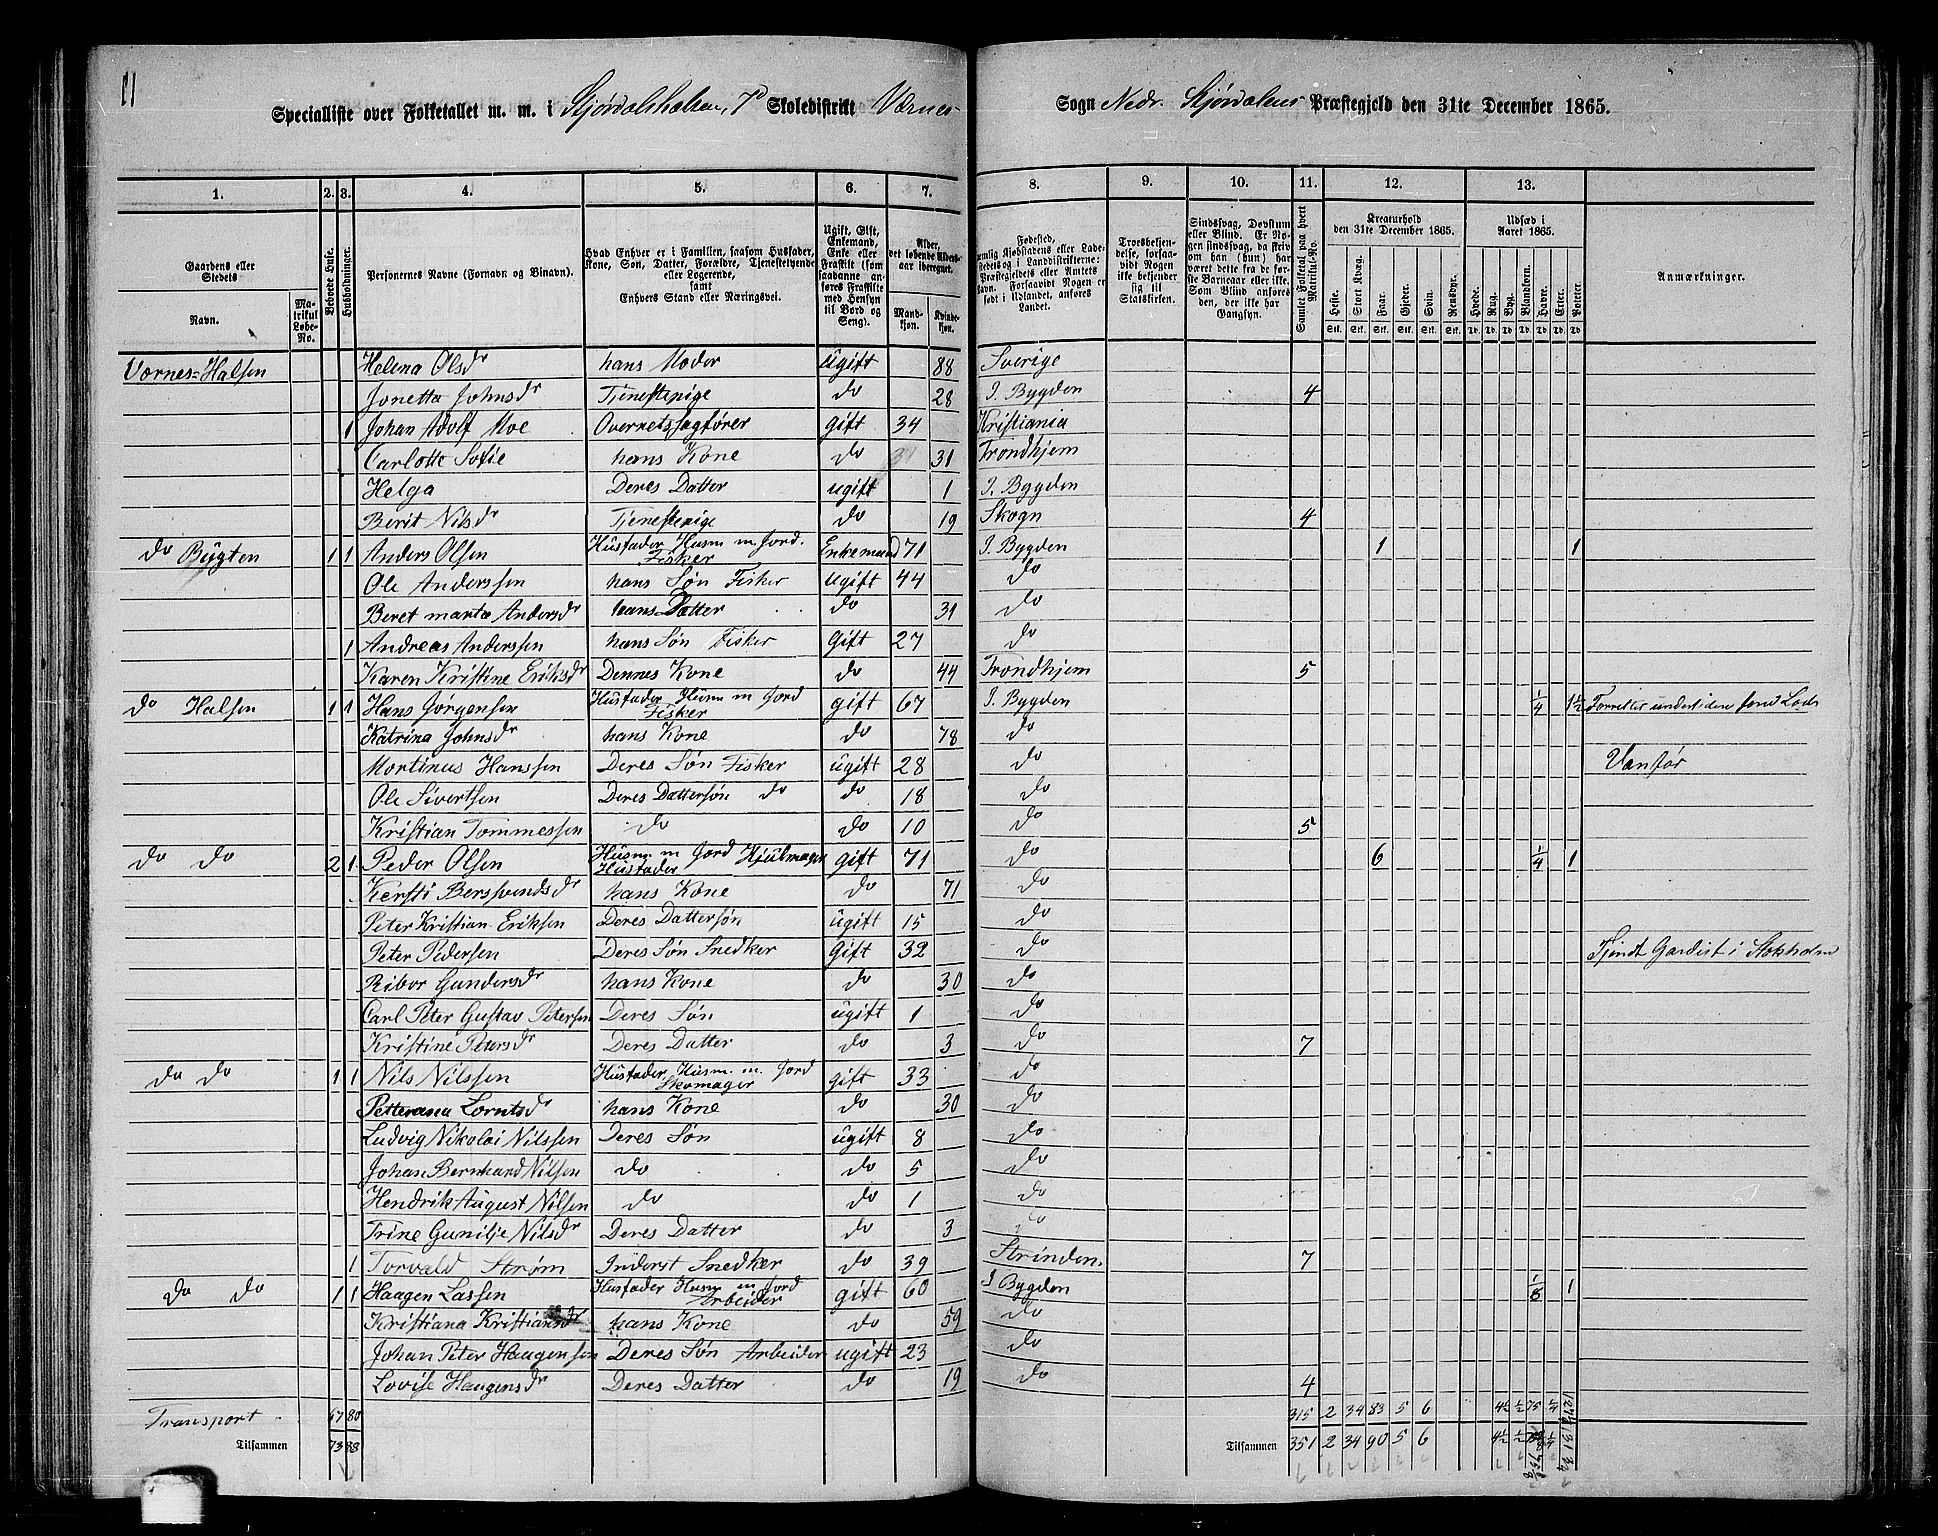 11
Specialliste over Folketallet m. m. i Stjørdalshalsen, 7de Skoledistrikt Værnes Sogn Nedr. Stjørdalens Præstegjeld den 31te December 1865.
1. 2. 3. 4. 5. 6. 7. 8. 9. 10. 11. 12. 13.
Gaardens eller Stedets
Navn.
Matrikul Løbe-No.
Beboede Huse.
Husholdninger.
Personernes Navne (Fornavn og Binavn).
Hvad Enhver er i Familien, saasom Husfader, Kone, Søn, Datter, Forældre, Tjenestetyende eller Logerende, samt Enhvers Stand eller Næringsvei.
Ugift, Gift, Enkemand, Enke eller Fraskilt (som saadanne anføres Fraskilte med Hensyn til Bord og Seng).
Alder, det løbende Aldersaar iberegnet.
Mandkjøn. Kvindekjøn.
Fødested,
Troesbekjendelse, forsaavidt Nogen ikke bekjender sig til Statskirken.
Sindssvag, Døvstum eller Blind.
Samlet Folketal paa hvert Matrikul-No.
Kreaturhold den 31te December 1865.
Heste. Stort Kvæg. Faar. Gjeder. Svin. Rensdyr.
Udsæd i Aaret 1865.
Hvede. Rug. Byg. Blandkorn. Havre. Erter. Poteter.
Anmærkninger.
Værnes-Halsen Helena Olsdr hans Moder ugift 88 Sverige
Jonetta Johnsdr Tjenestepige do 28 I. Bygden 4
1 Johan Adolf Moe Overretssagfører gift 34 Kristiania
Carlotte Sofie hans Kone do 31 Trondhjem
Helga Deres Datter ugift 1 I. Bygden
Berit Nilsdr Tjenestepige do 19 Skogn 4
do Bugten 1 1 Anders Olsen Husfader Husm m Jord. Fisker Enkemand 71 I. Bygden 1 1
Ole Anderssen hans Søn Fisker ugift 44 do
Beret marta Andersdr hans Datter do 31 do
1 Andreas Anderssen hans Søn Fisker Gift 27 do
Karen Kristine Eriksdr Dennes Kone do 44 Trondhjem 5
do Halsen 1 1 Hans Jørgensen Husfader Husm m Jord Fisker gift 67 I. Bygden 1/4 1 1/2 Forretter undertiden som Lods
Katrina Johnsdr hans Kone do 78 do
Mortinus Hanssen Deres Søn Fisker ugift 28 do Vanfør
Ole Sivertsen Deres Dattersøn do do 18 do
Kristian Tommessen do do 10 do 5
do do 2 1 Peder Olsen Husm m Jord Hjulmager Husfader gift 71 do 6 1/4 1
Kersti Bersvendsdr hans Kone do 71 do
Peter Kristian Eriksen Deres Dattersøn ugift 15 do
Peter Pedersen Deres Søn Snedker Gift 32 do Tjendt Gardist i Stokholm
Ribor Gundersdr hans Kone do 30 do
Carl Peter Gustav Petersen Deres Søn ugift 1 do
Kristine Petersdr Deres Datter do 3 do 7
do do 1 1 Nils Nilssen Husfader, Husm. m. Jord Skomager gift 33 do
Petterana Lorntsdr hans Kone do 30 do
Ludvig Nikolai Nilssen Deres Søn ugift 8 do
Johan Bernhard Nilsen do do 5 do
Hendrik August Nilsen do do 1 do
Trine Gunilje Nilsdr Deres Datter do 3 do
1 Torvald Strøm Inderst Snedker do 39 Strinden. 7
do do 1 1 Haagen Lassen Husfader Husm m Jord Arbeider gift 60 I Bygden 1/8 1
Kristiana Kristiansdr hans Kone do 59 do
Johan Peter Haagensen Deres Søn Arbeider ugift 23 do
Lovise Haagensdr Deres Datter do 19 do 4
Transport 67 80 315 2 34 83 5 6 4 1/2 1/2 75 1/4
Tilsammen 73 88 Tilsammen 351 2 34 90 5 6 4 1/2 1/2 1/4